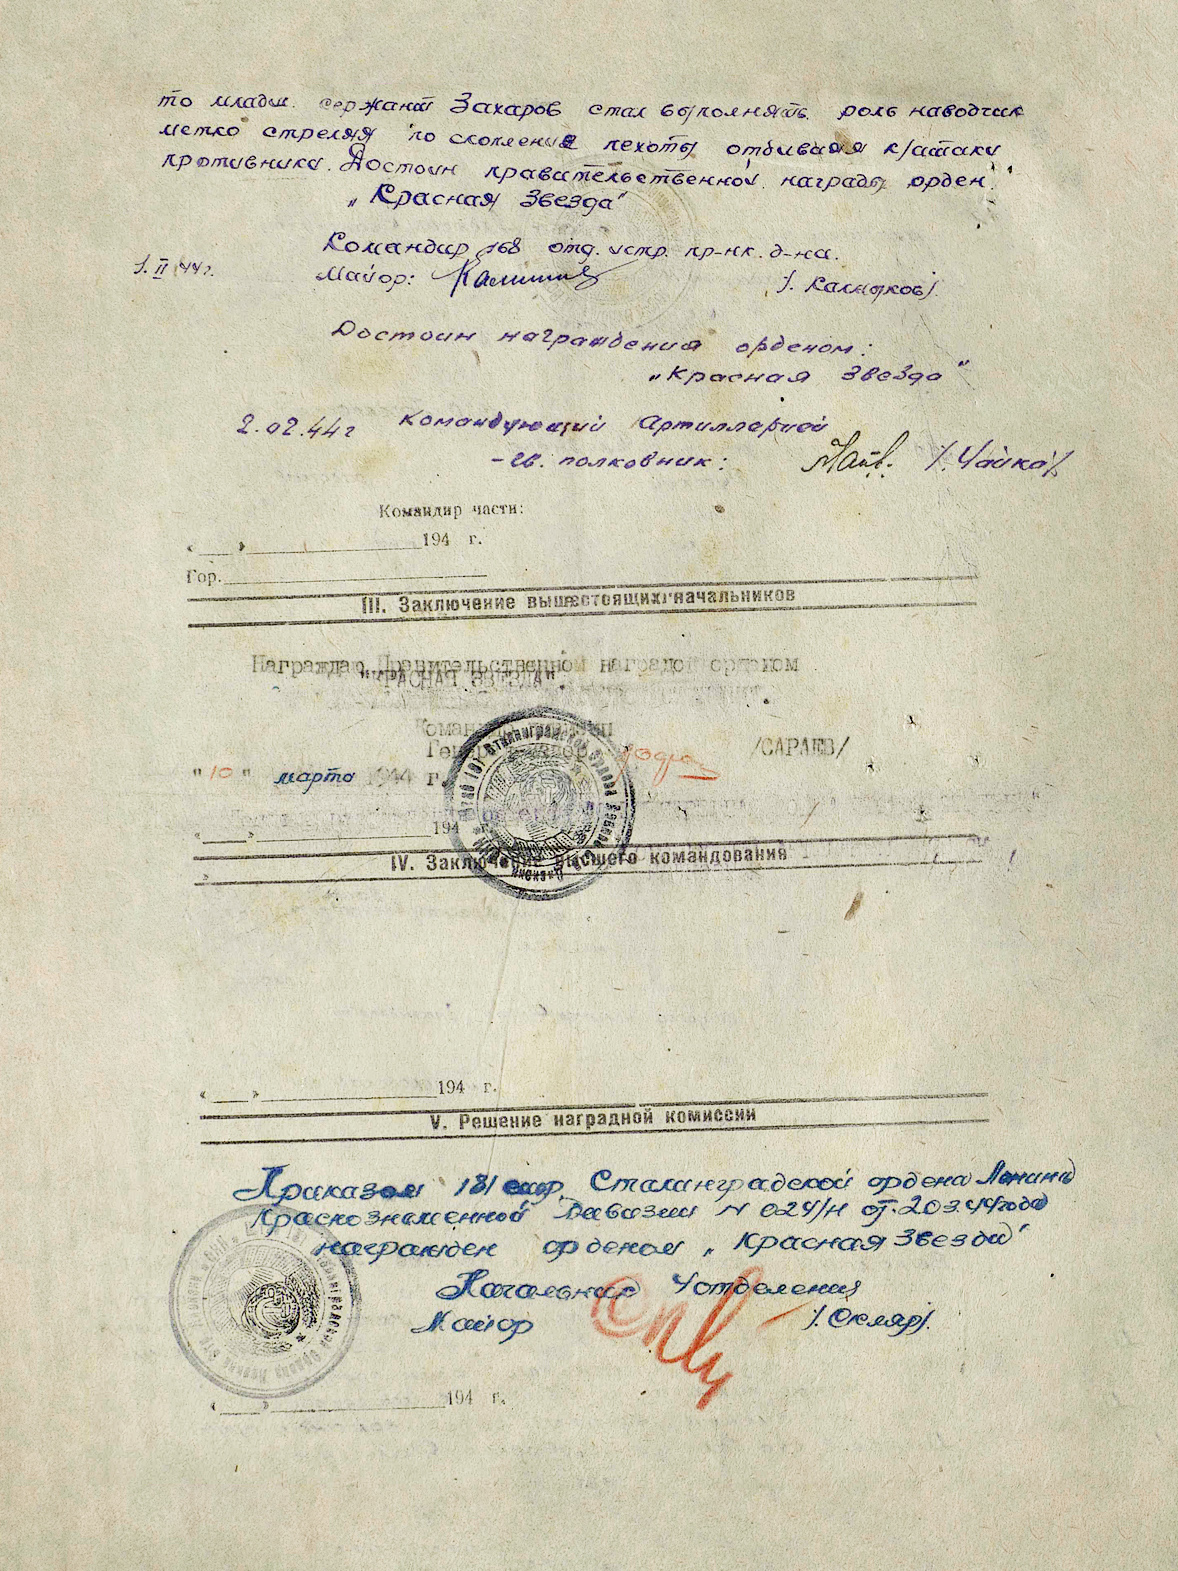 то младш. сержант Захаров стал выполнять роль наводчик
метко стреляя по скопления пехоты отбивая к/атаки
противника. Достоин правительственной награды орден.
„Красная Звезда"
Командир 168 отд. истр. пр-тк. д-на.
1.II.44г. Майор: /. Калмыков/.
Достоин награждения орденом:
„Красная Звезда"
2.02.44г Командующий Артиллерией
- гв. полковник: /. Чайка/
Командир части:
«___»____________194 г.
Гор.____________
III. Заключение вышестоящих начальников
Награждаю Правительственной наградой орденом
"КРАСНАЯ ЗВЕЗДА".
Командир дивизии
Генерал-майор /САРАЕВ/
"10" марта 1944 г.
«___»____________194 г.
IV. Заключение высшего командования
«___»____________194 г.
V. Решение наградной комиссии
Приказом 181 стр. Сталинградской ордена Ленина
Краснознаменной Дивизии N 024/н от 20.3.44 года
награжден орденом „Красная Звезда"
Начальник 4 отделения
Майор /. Скляр/.
«___»____________194 г.